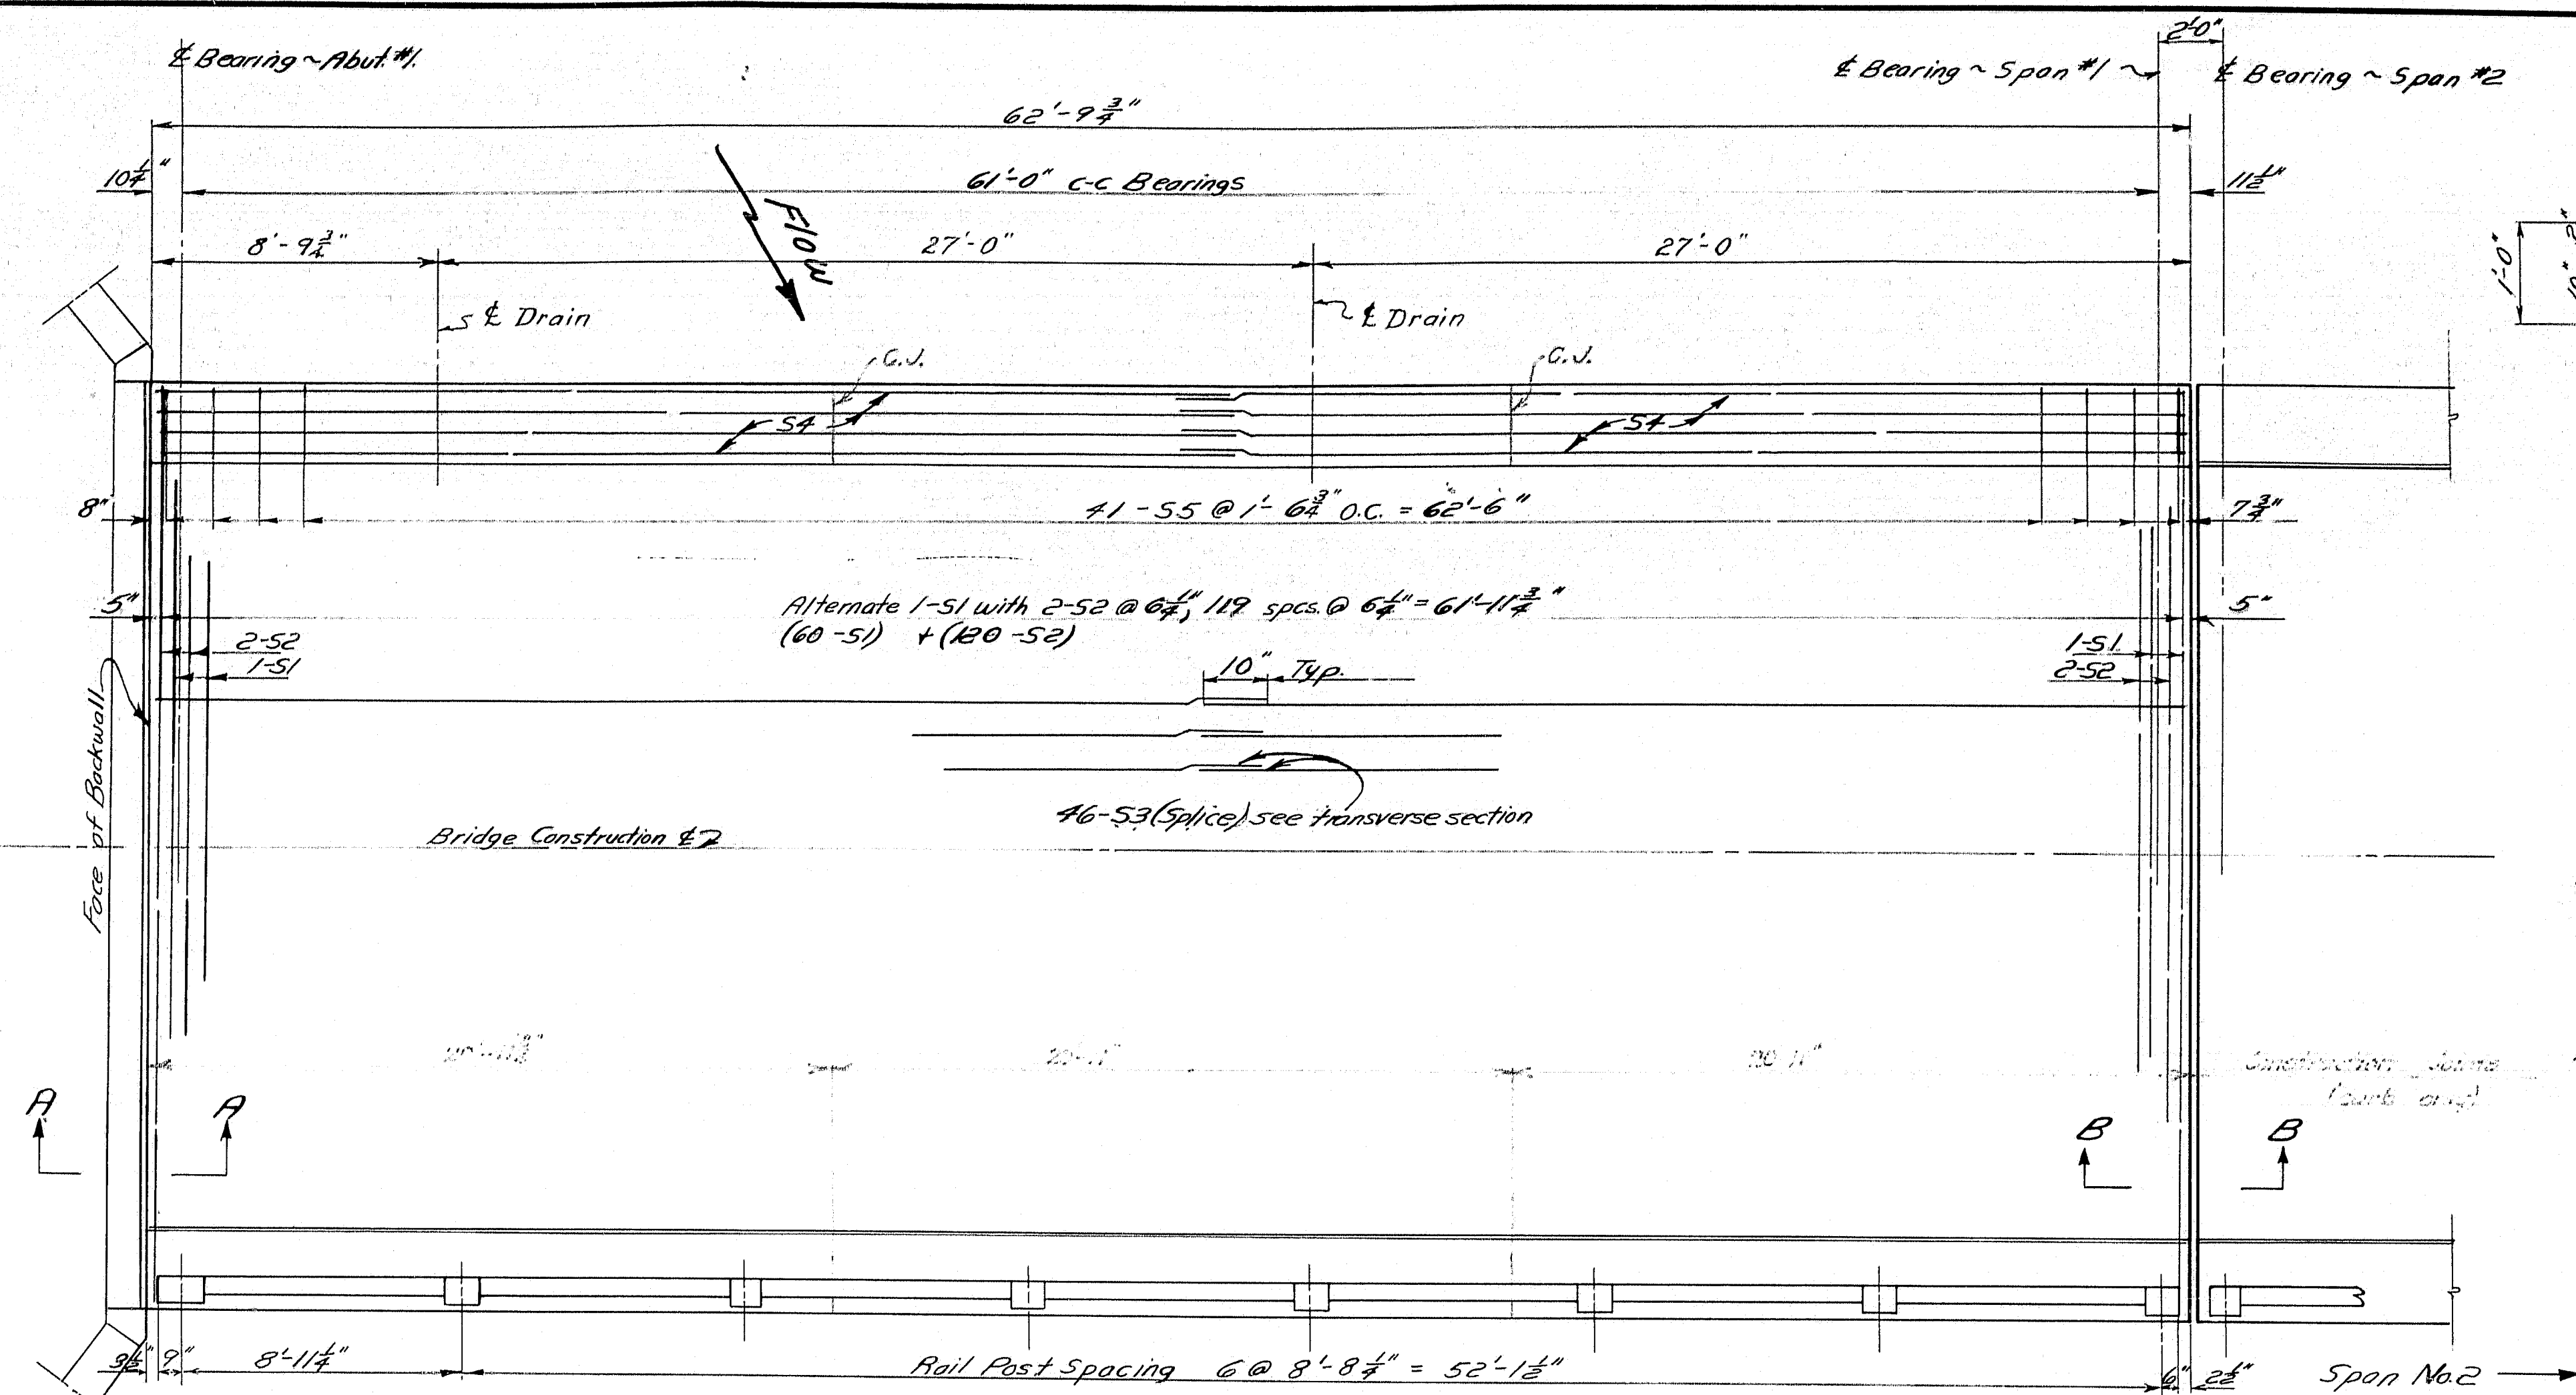 2'-0"
℄ Bearing ~ Abut. #1.
℄ Bearing ~ Span #1
℄ Bearing ~ Span #2
62'-9 3/4"
10 1/4"
61'-0" c-c Bearings
11 1/2"
8'-9 3/4"
27'-0"
27'-0"
1'-0"
10"
2"
FLOW
℄ Drain
℄ Drain
C.J.
C.J.
S4
S4
8"
41-S5 @ 1'-6 3/4" O.C. = 62'-6"
7 3/4"
5"
Alternate 1-S1 with 2-S2 @ 6 1/4", 119 spcs. @ 6 1/4" = 61'-11 3/4"
5"
(60-S1) + (120-S2)
2-S2
1-S1
1-S1
2-S2
10" Typ.
Face of Backwall
46-S3 (Splice) see transverse section
Bridge Construction ℄
20'-11"
Construction Joints
(curb only)
A
A
B
B
3 1/2"
9"
8'-11 1/4"
Rail Post Spacing 6 @ 8'-8 1/4" = 52'-1 1/2"
6"
2 1/2"
Span No. 2